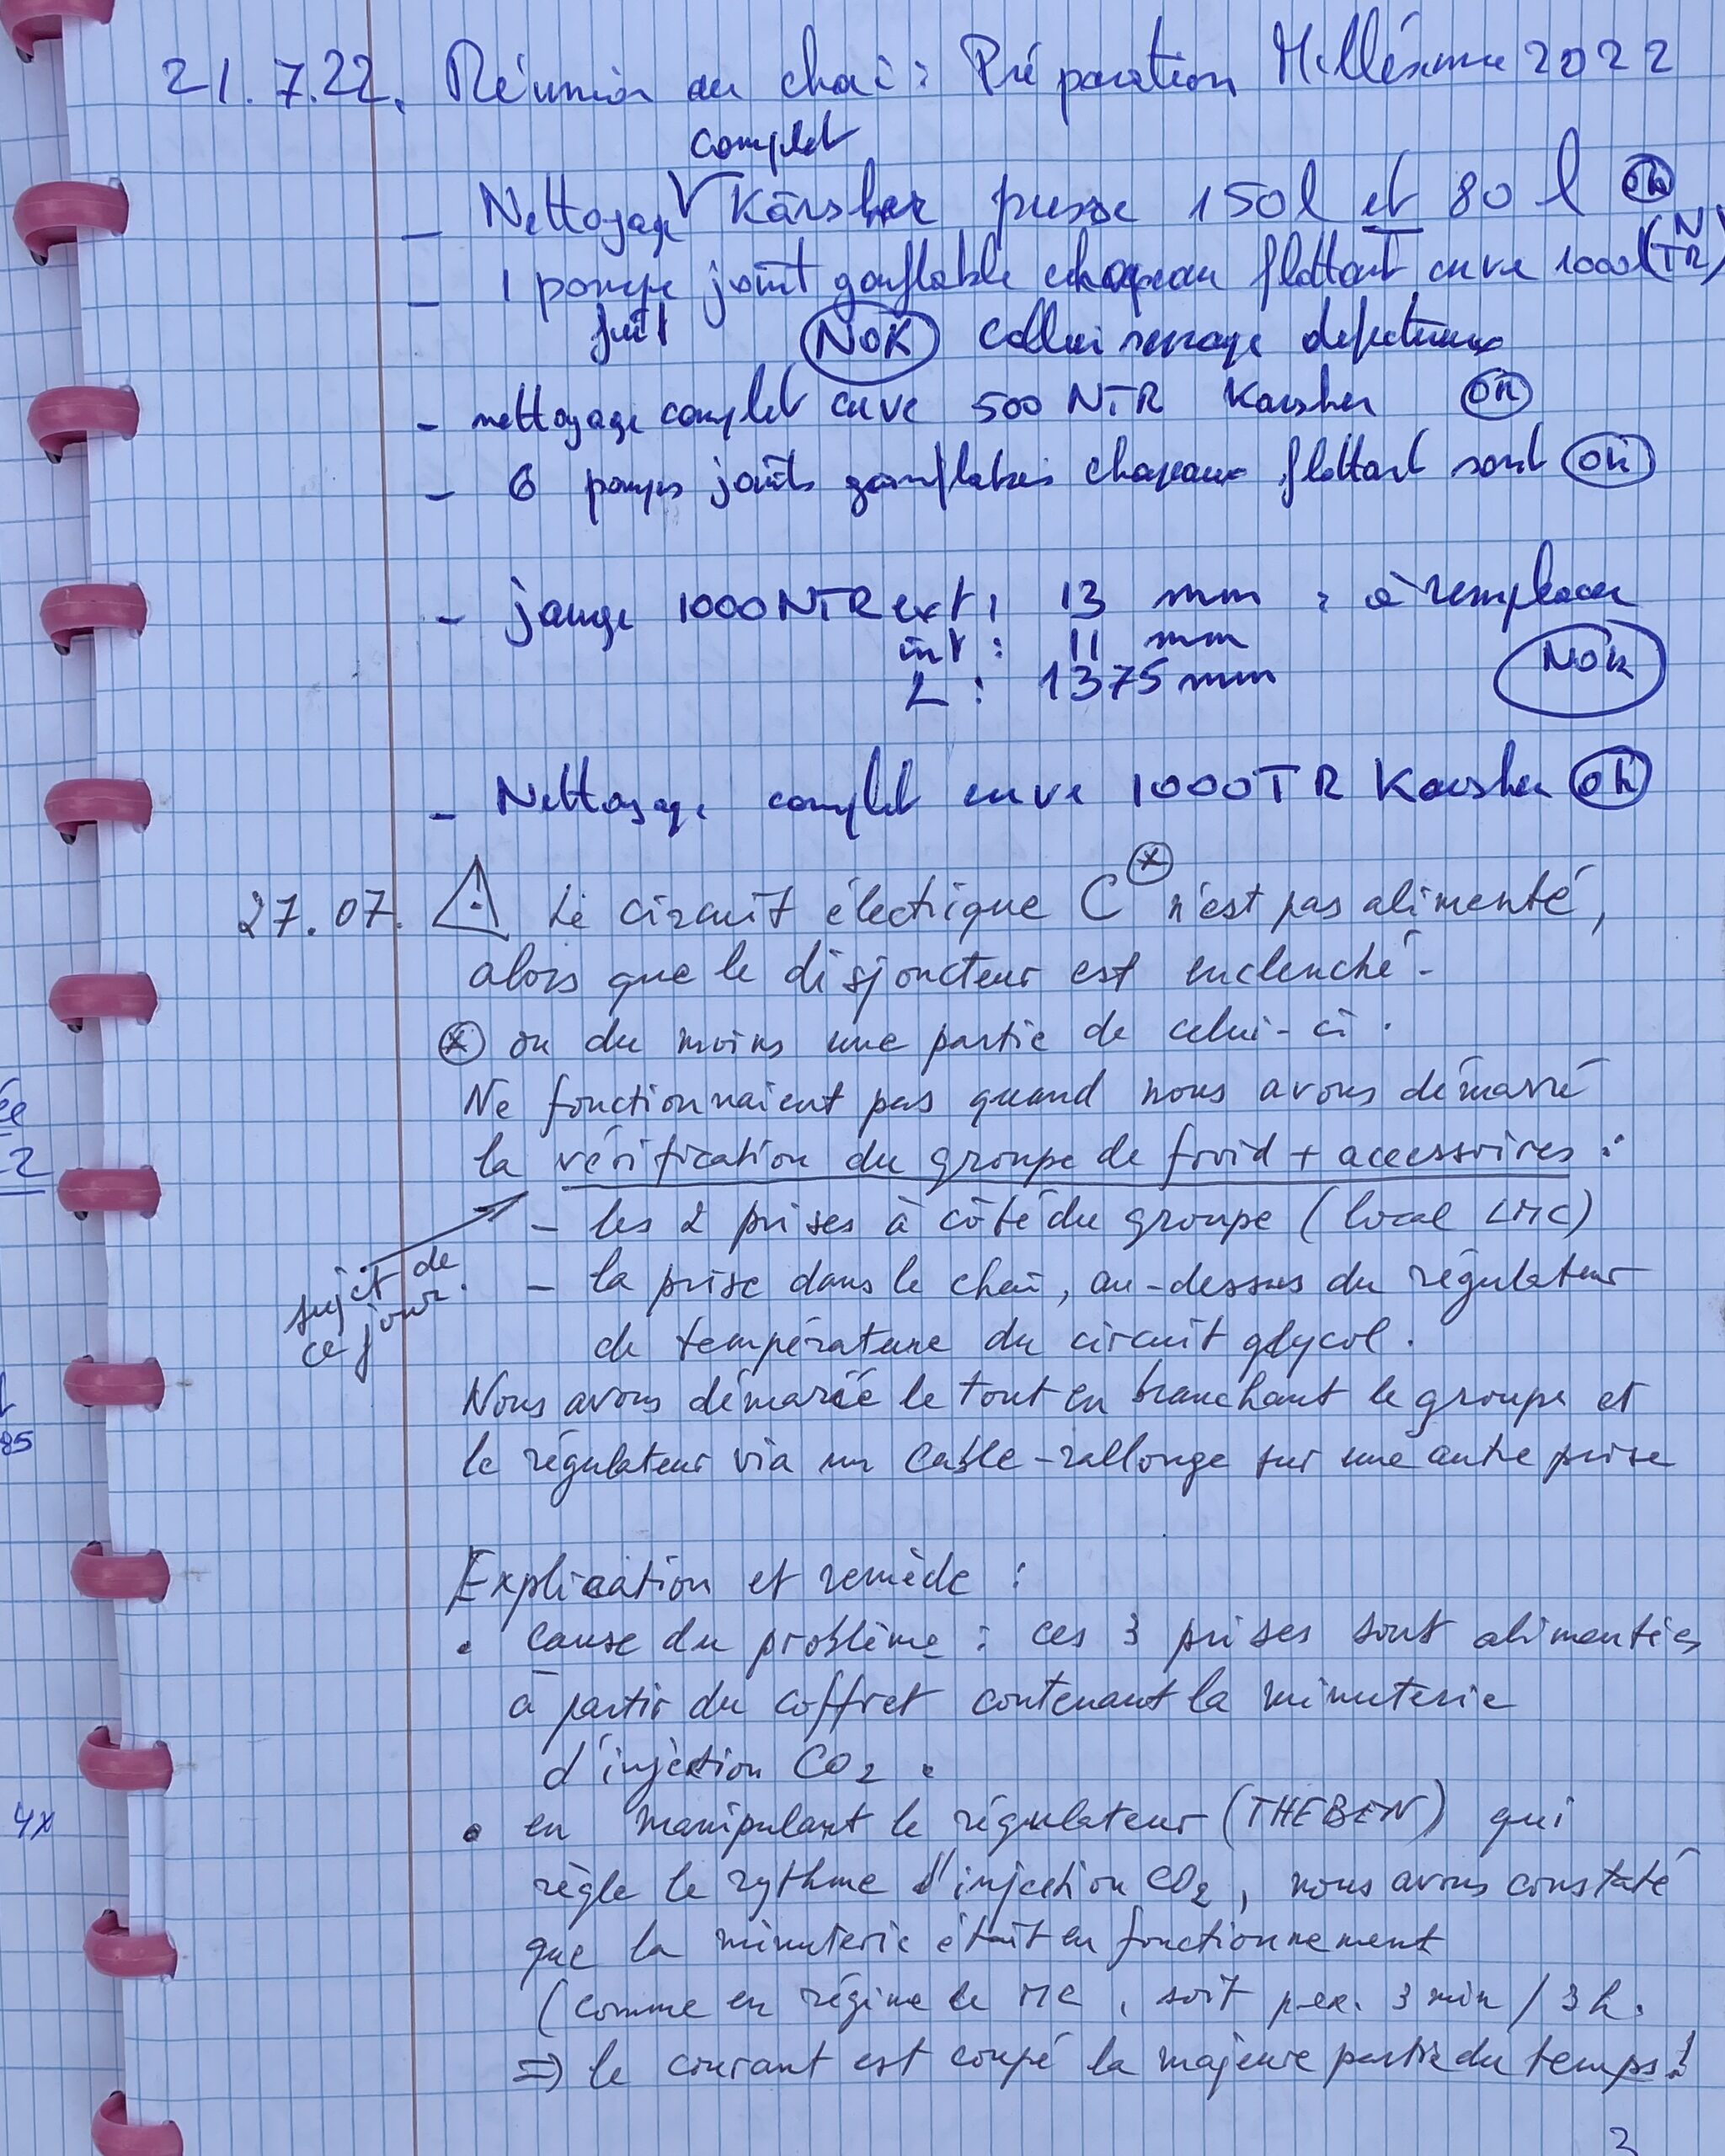 21.7.22. Réunion au chai : Préparation Millésime 2022
complet
- Nettoyage √ Kärsher presse 150l et 80 l OK
- 1 pompe joint gonflable chapeau flottant cuve 1000l (NTR)
fuit NOK Collier serrage defectueux
- nettoyage complet cuve 500 NTR Karsher OK
- 6 pompes joints gonflables chapeaux flottant sont OK
- jauge 1000NTR ext : 13 mm : à remplacer
int : 11 mm
L : 1375 mm
NOK
- Nettoyage complet cuve 1000TR Karsher OK
27.07. ⚠ Le circuit électrique C * n'est pas alimenté,
alors que le disjoncteur est enclenché.
* ou du moins une partie de celui-ci.
Ne fonctionnaient pas quand nous avons démarré
la vérification du groupe de froid + accessoires :
- les 2 prises à côté du groupe (local LMC)
sujet de
ce jour.
- la prise dans le chai, au-dessus du régulateur
de température du circuit glycol.
Nous avons démarré le tout en branchant le groupe et
le régulateur via un cable-rallonge sur une autre prise
Explication et remède :
• cause du problème : ces 3 prises sont alimentées
à partir du coffret contenant la minuterie
d'injection CO2.
• en manipulant le régulateur (THEBEN) qui
règle le rythme d'injection CO2, nous avons constaté
que la minuterie était en fonctionnement
(comme en régime de MC, soit p.ex. 3 min / 3h.
⇒ le courant est coupé la majeure partie du temps !
4x
85
2